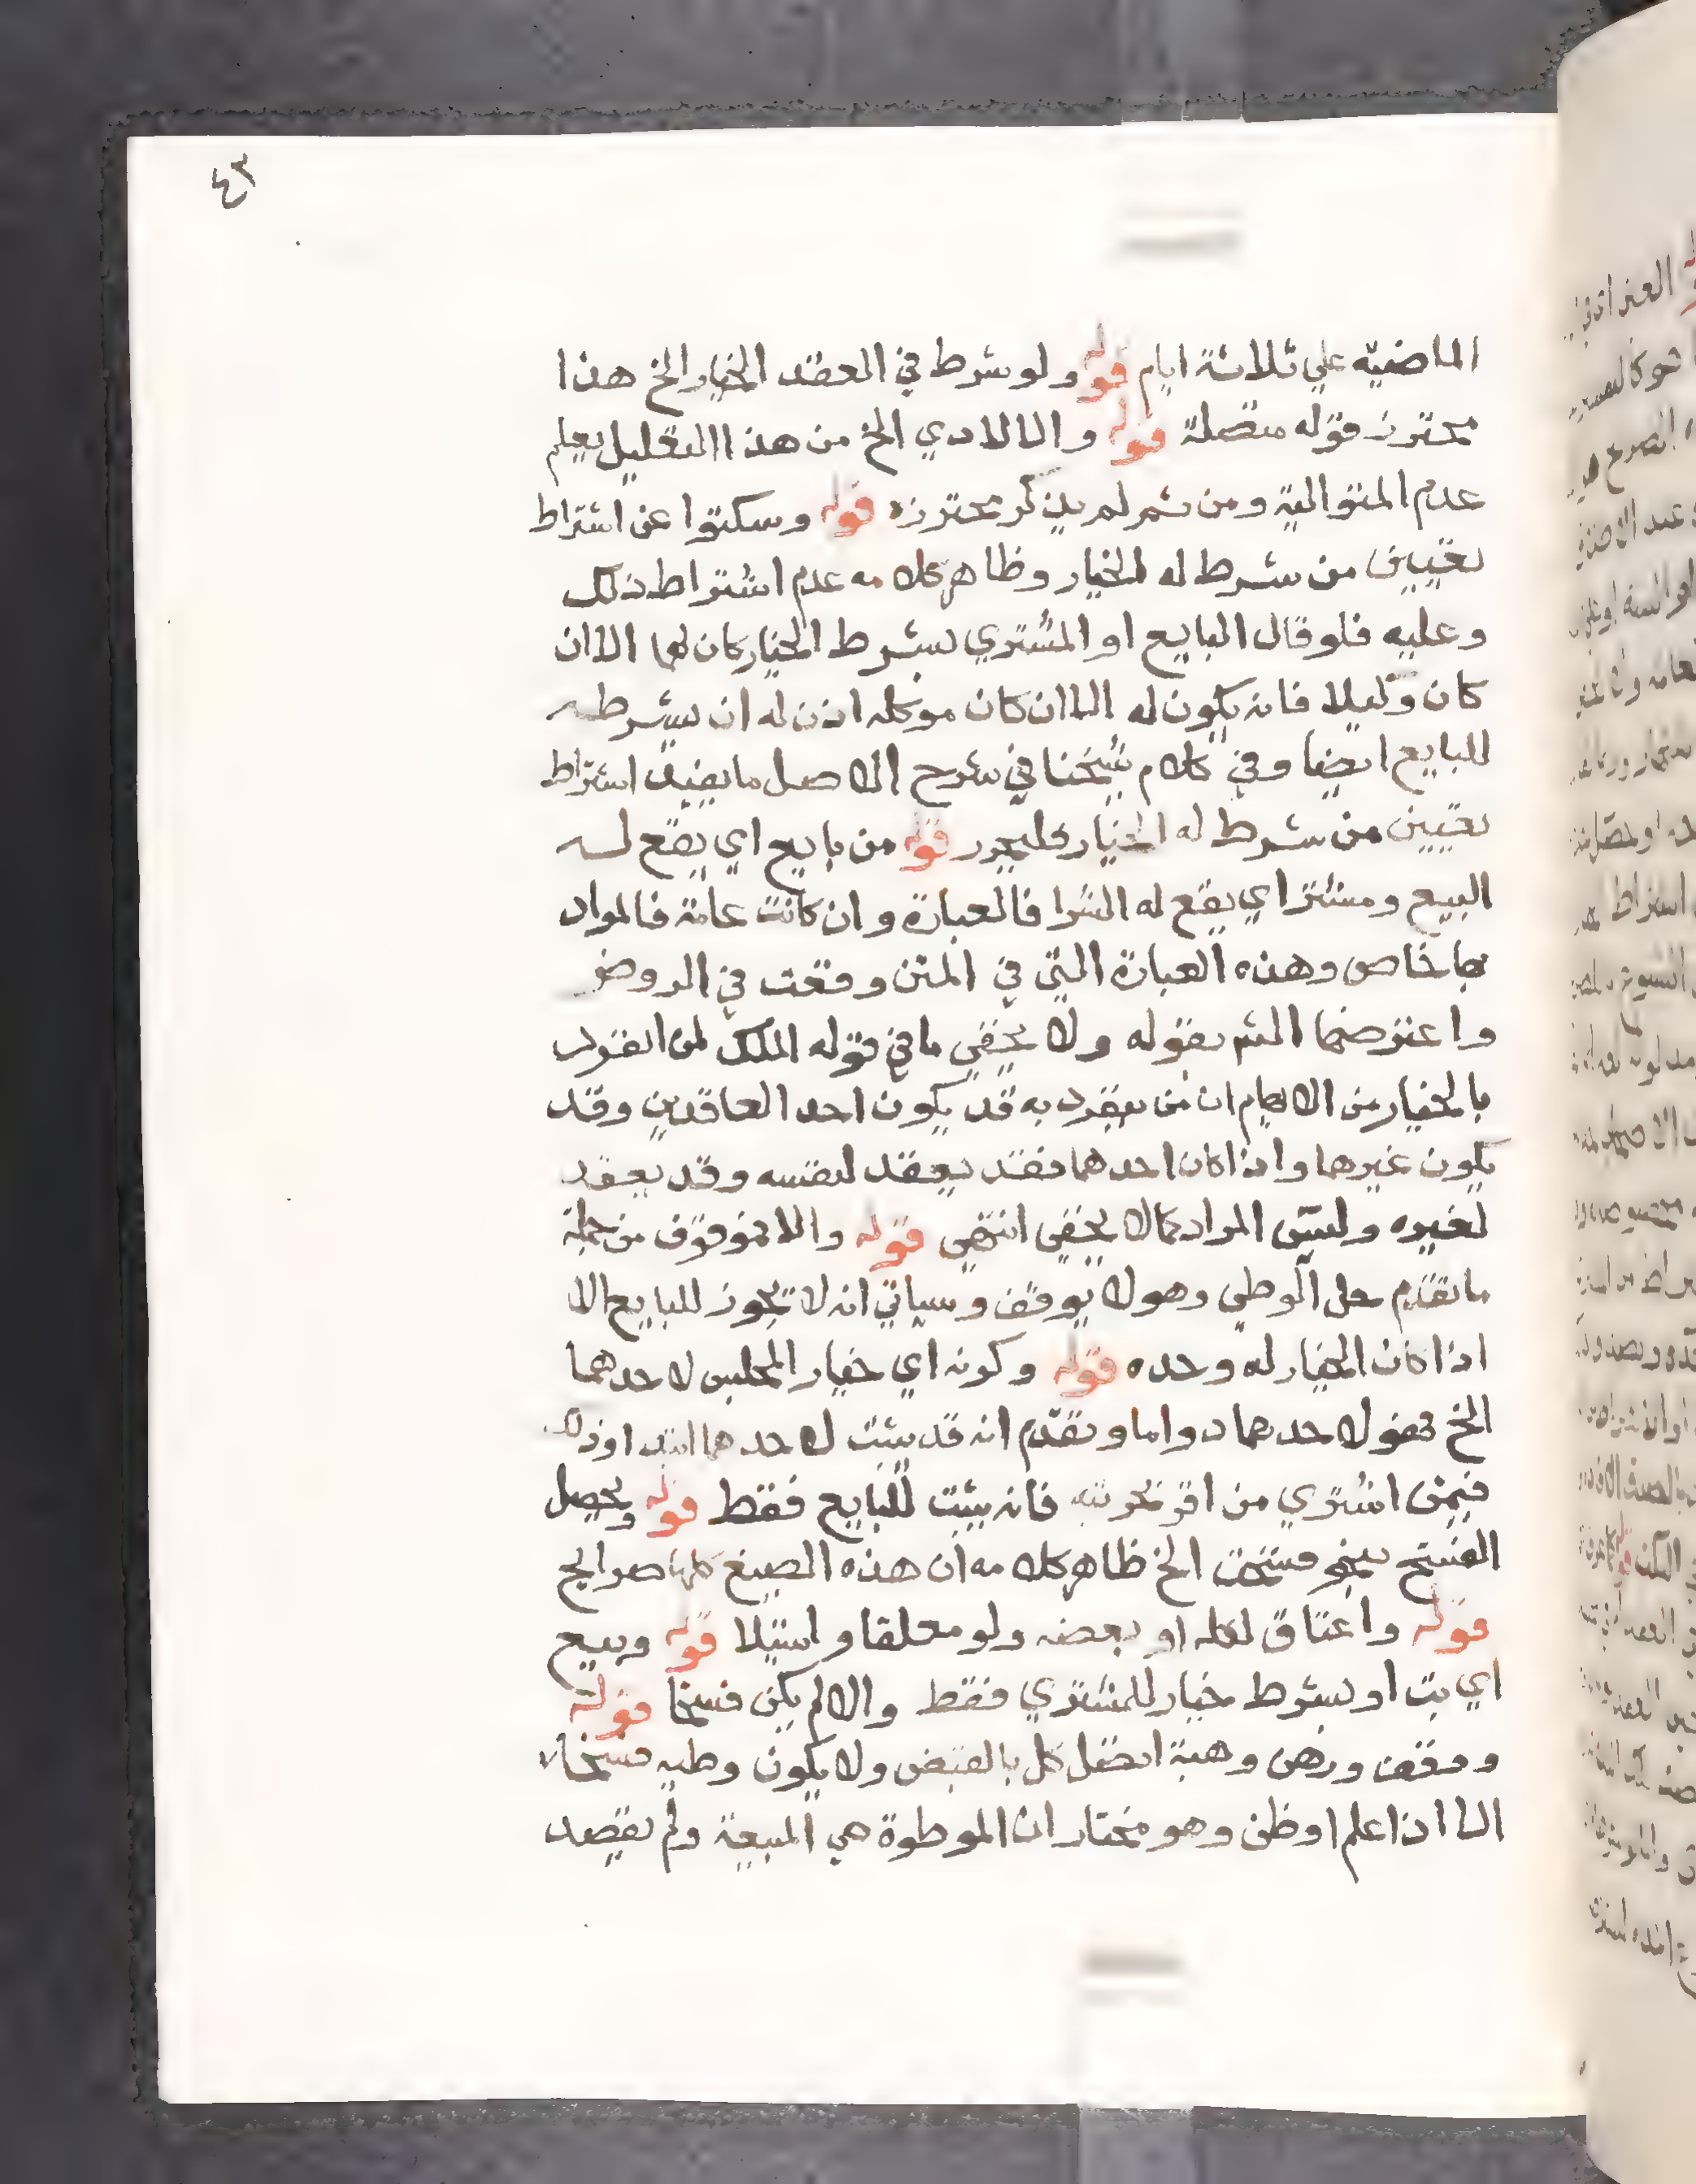 ٤٣
الماضية علي ثلاثة ايام قوله ولو شرط في العقد الخيار الخ هذا
محترز قوله متصلة قوله والا لادي الخ من هذا التعليل يعلم
عدم المتوالية ومن ثم لم يذكر محترزه قوله وسكتوا عن اشتراط
تعيين من شرط له الخيار وظاهر كلامه عدم اشتراط ذلك
وعليه فلو قال البايع او المشتري بشرط الخيار كان لهما الا ان
كان وكيلا فانه يكون له الا ان كان موكله اذن له ان يشرطه
للبايع ايضا وفي كلام شيخنا في شرح الاصل ما يفيد اشتراط
تعيين من شرط له الخيار فليحرر قوله من بايع اي يقع له
البيع ومشتر اي يقع له الشرا فالعبارة وان كانت عامة فالمراد
بها خاص وهذه العبارة التي في المتن وقعت في الروض
واعترضها الشم بقوله ولا يخفي ما في قوله الملك لمن انفرد
بالخيار من الابهام ان من ينفرد به قد يكون احد العاقدين وقد
يكون غيرهما واذا كان احدهما فقد يعقد لنفسه وقد يعقد
لغيره وليس المراد كما لا يخفي انتهي قوله والا فموقوف من جملة
ما تقدم حل الوطي وهو لا يوقف وسياتي انه لا يجوز للبايع الا
اذا كان الخيار له وحده قوله وكونه اي خيار المجلس لاحدهما
الخ فهو لاحدهما دواما وتقدم انه قد يثبت لاحدهما ابتدا وذلك
فيمن اشتري من اقر بحريته فانه يثبت للبايع فقط قوله ويحصل
الفسخ بنحو فسخت الخ ظاهر كلامه ان هذه الصيغ كلها صرايح
قوله واعتاق لكله او بعضه ولو معلقا واستيلا قوله وبيع
اي بت او بشرط خيار للمشتري فقط والا لم يكن فسخا قوله
ووقف ورهن وهبة اتصل كل بالقبض ولا يكون وطيه فسخا
الا اذا علم او ظن وهو مختار ان الموطوة هي المبيعة ولم يقصد